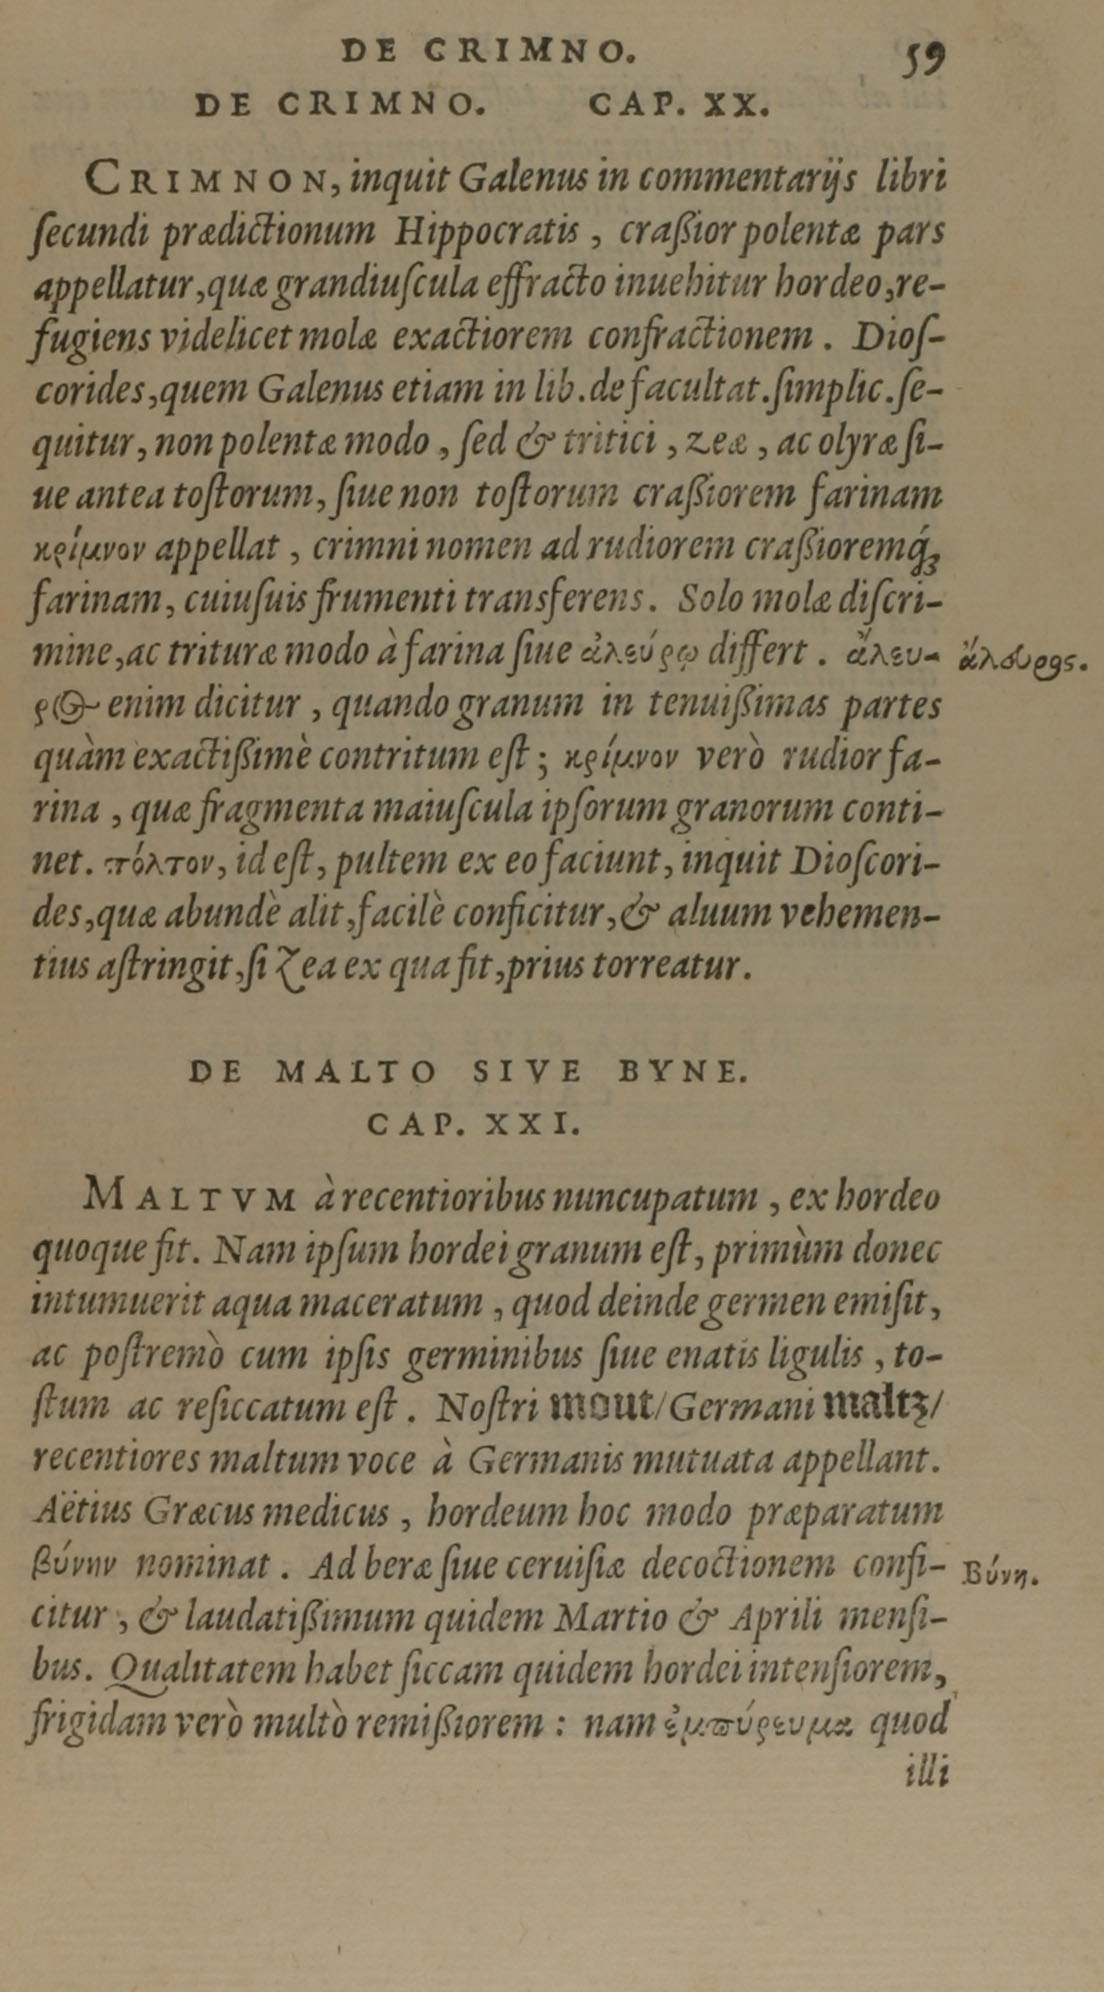 DE CRIMNO. 59
DE CRIMNO. CAP. XX.
CRIMNON, inquit Galenus in commentarijs libri
ſecundi prædictionum Hippocratis, craßior polentæ pars
appellatur, quæ grandiuſcula effracto inuehitur hordeo, re-
fugiens videlicet molæ exactiorem confractionem. Dioſ-
corides, quem Galenus etiam in lib. de facultat. ſimplic. ſe-
quitur, non polentæ modo, ſed & tritici, zeæ, ac olyræ ſi-
ue antea toſtorum, ſiue non toſtorum craßiorem farinam
κρίμνον appellat, crimni nomen ad rudiorem craßioremq́ꝫ
farinam, cuiuſuis frumenti transferens. Solo molæ diſcri-
mine, ac trituræ modo à farina ſiue ἀλεύρῳ differt. ἄλευ-
ρος enim dicitur, quando granum in tenuißimas partes
quàm exactißimè contritum eſt; κρίμνον verò rudior fa-
rina, quæ fragmenta maiuſcula ipſorum granorum conti-
net. πόλτον, id eſt, pultem ex eo faciunt, inquit Dioſcori-
des, quæ abundè alit, facilè conficitur, & aluum vehemen-
tius aſtringit, ſi Zea ex qua fit, prius torreatur.
ἄλευρος.
DE MALTO SIVE BYNE.
CAP. XXI.
MALTVM à recentioribus nuncupatum, ex hordeo
quoque fit. Nam ipſum hordei granum eſt, primùm donec
intumuerit aqua maceratum, quod deinde germen emiſit,
ac poſtremò cum ipſis germinibus ſiue enatis ligulis, to-
ſtum ac reſiccatum eſt. Noſtri mout/ Germani maltz/
recentiores maltum voce à Germanis mutuata appellant.
Aëtius Græcus medicus, hordeum hoc modo præparatum
βύνην nominat. Ad beræ ſiue ceruiſiæ decoctionem confi-
citur, & laudatißimum quidem Martio & Aprili menſi-
bus. Qualitatem habet ſiccam quidem hordei intenſiorem,
frigidam verò multò remißiorem: nam ἐμπύρευμα quod
illi
Βύνη.